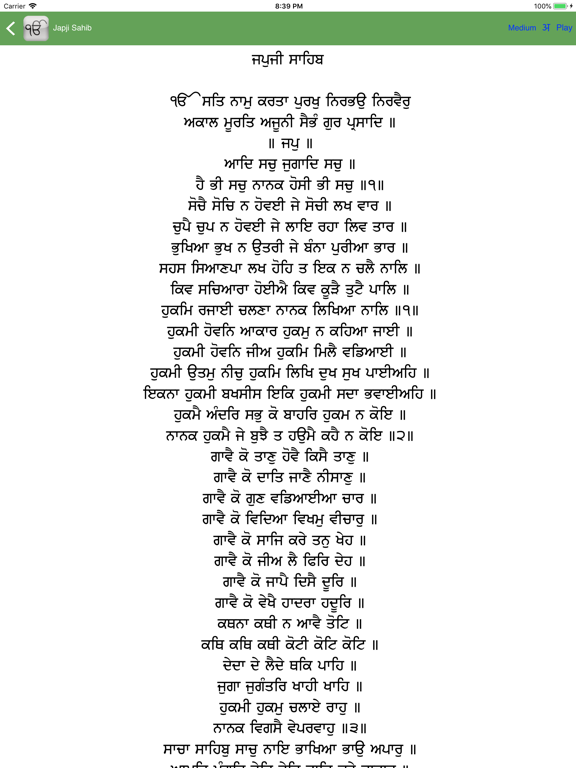 Carrier 8:39 PM 100%
ੴ Japji Sahib Medium अ Play
ਜਪੁਜੀ ਸਾਹਿਬ
ੴ ਸਤਿ ਨਾਮੁ ਕਰਤਾ ਪੁਰਖੁ ਨਿਰਭਉ ਨਿਰਵੈਰੁ
ਅਕਾਲ ਮੂਰਤਿ ਅਜੂਨੀ ਸੈਭੰ ਗੁਰ ਪ੍ਰਸਾਦਿ ॥
॥ ਜਪੁ ॥
ਆਦਿ ਸਚੁ ਜੁਗਾਦਿ ਸਚੁ ॥
ਹੈ ਭੀ ਸਚੁ ਨਾਨਕ ਹੋਸੀ ਭੀ ਸਚੁ ॥੧॥
ਸੋਚੈ ਸੋਚਿ ਨ ਹੋਵਈ ਜੇ ਸੋਚੀ ਲਖ ਵਾਰ ॥
ਚੁਪੈ ਚੁਪ ਨ ਹੋਵਈ ਜੇ ਲਾਇ ਰਹਾ ਲਿਵ ਤਾਰ ॥
ਭੁਖਿਆ ਭੁਖ ਨ ਉਤਰੀ ਜੇ ਬੰਨਾ ਪੁਰੀਆ ਭਾਰ ॥
ਸਹਸ ਸਿਆਣਪਾ ਲਖ ਹੋਹਿ ਤ ਇਕ ਨ ਚਲੈ ਨਾਲਿ ॥
ਕਿਵ ਸਚਿਆਰਾ ਹੋਈਐ ਕਿਵ ਕੂੜੈ ਤੁਟੈ ਪਾਲਿ ॥
ਹੁਕਮਿ ਰਜਾਈ ਚਲਣਾ ਨਾਨਕ ਲਿਖਿਆ ਨਾਲਿ ॥੧॥
ਹੁਕਮੀ ਹੋਵਨਿ ਆਕਾਰ ਹੁਕਮੁ ਨ ਕਹਿਆ ਜਾਈ ॥
ਹੁਕਮੀ ਹੋਵਨਿ ਜੀਅ ਹੁਕਮਿ ਮਿਲੈ ਵਡਿਆਈ ॥
ਹੁਕਮੀ ਉਤਮੁ ਨੀਚੁ ਹੁਕਮਿ ਲਿਖਿ ਦੁਖ ਸੁਖ ਪਾਈਅਹਿ ॥
ਇਕਨਾ ਹੁਕਮੀ ਬਖਸੀਸ ਇਕਿ ਹੁਕਮੀ ਸਦਾ ਭਵਾਈਅਹਿ ॥
ਹੁਕਮੈ ਅੰਦਰਿ ਸਭੁ ਕੋ ਬਾਹਰਿ ਹੁਕਮ ਨ ਕੋਇ ॥
ਨਾਨਕ ਹੁਕਮੈ ਜੇ ਬੁਝੈ ਤ ਹਉਮੈ ਕਹੈ ਨ ਕੋਇ ॥੨॥
ਗਾਵੈ ਕੋ ਤਾਣੁ ਹੋਵੈ ਕਿਸੈ ਤਾਣੁ ॥
ਗਾਵੈ ਕੋ ਦਾਤਿ ਜਾਣੈ ਨੀਸਾਣੁ ॥
ਗਾਵੈ ਕੋ ਗੁਣ ਵਡਿਆਈਆ ਚਾਰ ॥
ਗਾਵੈ ਕੋ ਵਿਦਿਆ ਵਿਖਮੁ ਵੀਚਾਰੁ ॥
ਗਾਵੈ ਕੋ ਸਾਜਿ ਕਰੇ ਤਨੁ ਖੇਹ ॥
ਗਾਵੈ ਕੋ ਜੀਅ ਲੈ ਫਿਰਿ ਦੇਹ ॥
ਗਾਵੈ ਕੋ ਜਾਪੈ ਦਿਸੈ ਦੂਰਿ ॥
ਗਾਵੈ ਕੋ ਵੇਖੈ ਹਾਦਰਾ ਹਦੂਰਿ ॥
ਕਥਨਾ ਕਥੀ ਨ ਆਵੈ ਤੋਟਿ ॥
ਕਥਿ ਕਥਿ ਕਥੀ ਕੋਟੀ ਕੋਟਿ ਕੋਟਿ ॥
ਦੇਦਾ ਦੇ ਲੈਦੇ ਥਕਿ ਪਾਹਿ ॥
ਜੁਗਾ ਜੁਗੰਤਰਿ ਖਾਹੀ ਖਾਹਿ ॥
ਹੁਕਮੀ ਹੁਕਮੁ ਚਲਾਏ ਰਾਹੁ ॥
ਨਾਨਕ ਵਿਗਸੈ ਵੇਪਰਵਾਹੁ ॥੩॥
ਸਾਚਾ ਸਾਹਿਬੁ ਸਾਚੁ ਨਾਇ ਭਾਖਿਆ ਭਾਉ ਅਪਾਰੁ ॥